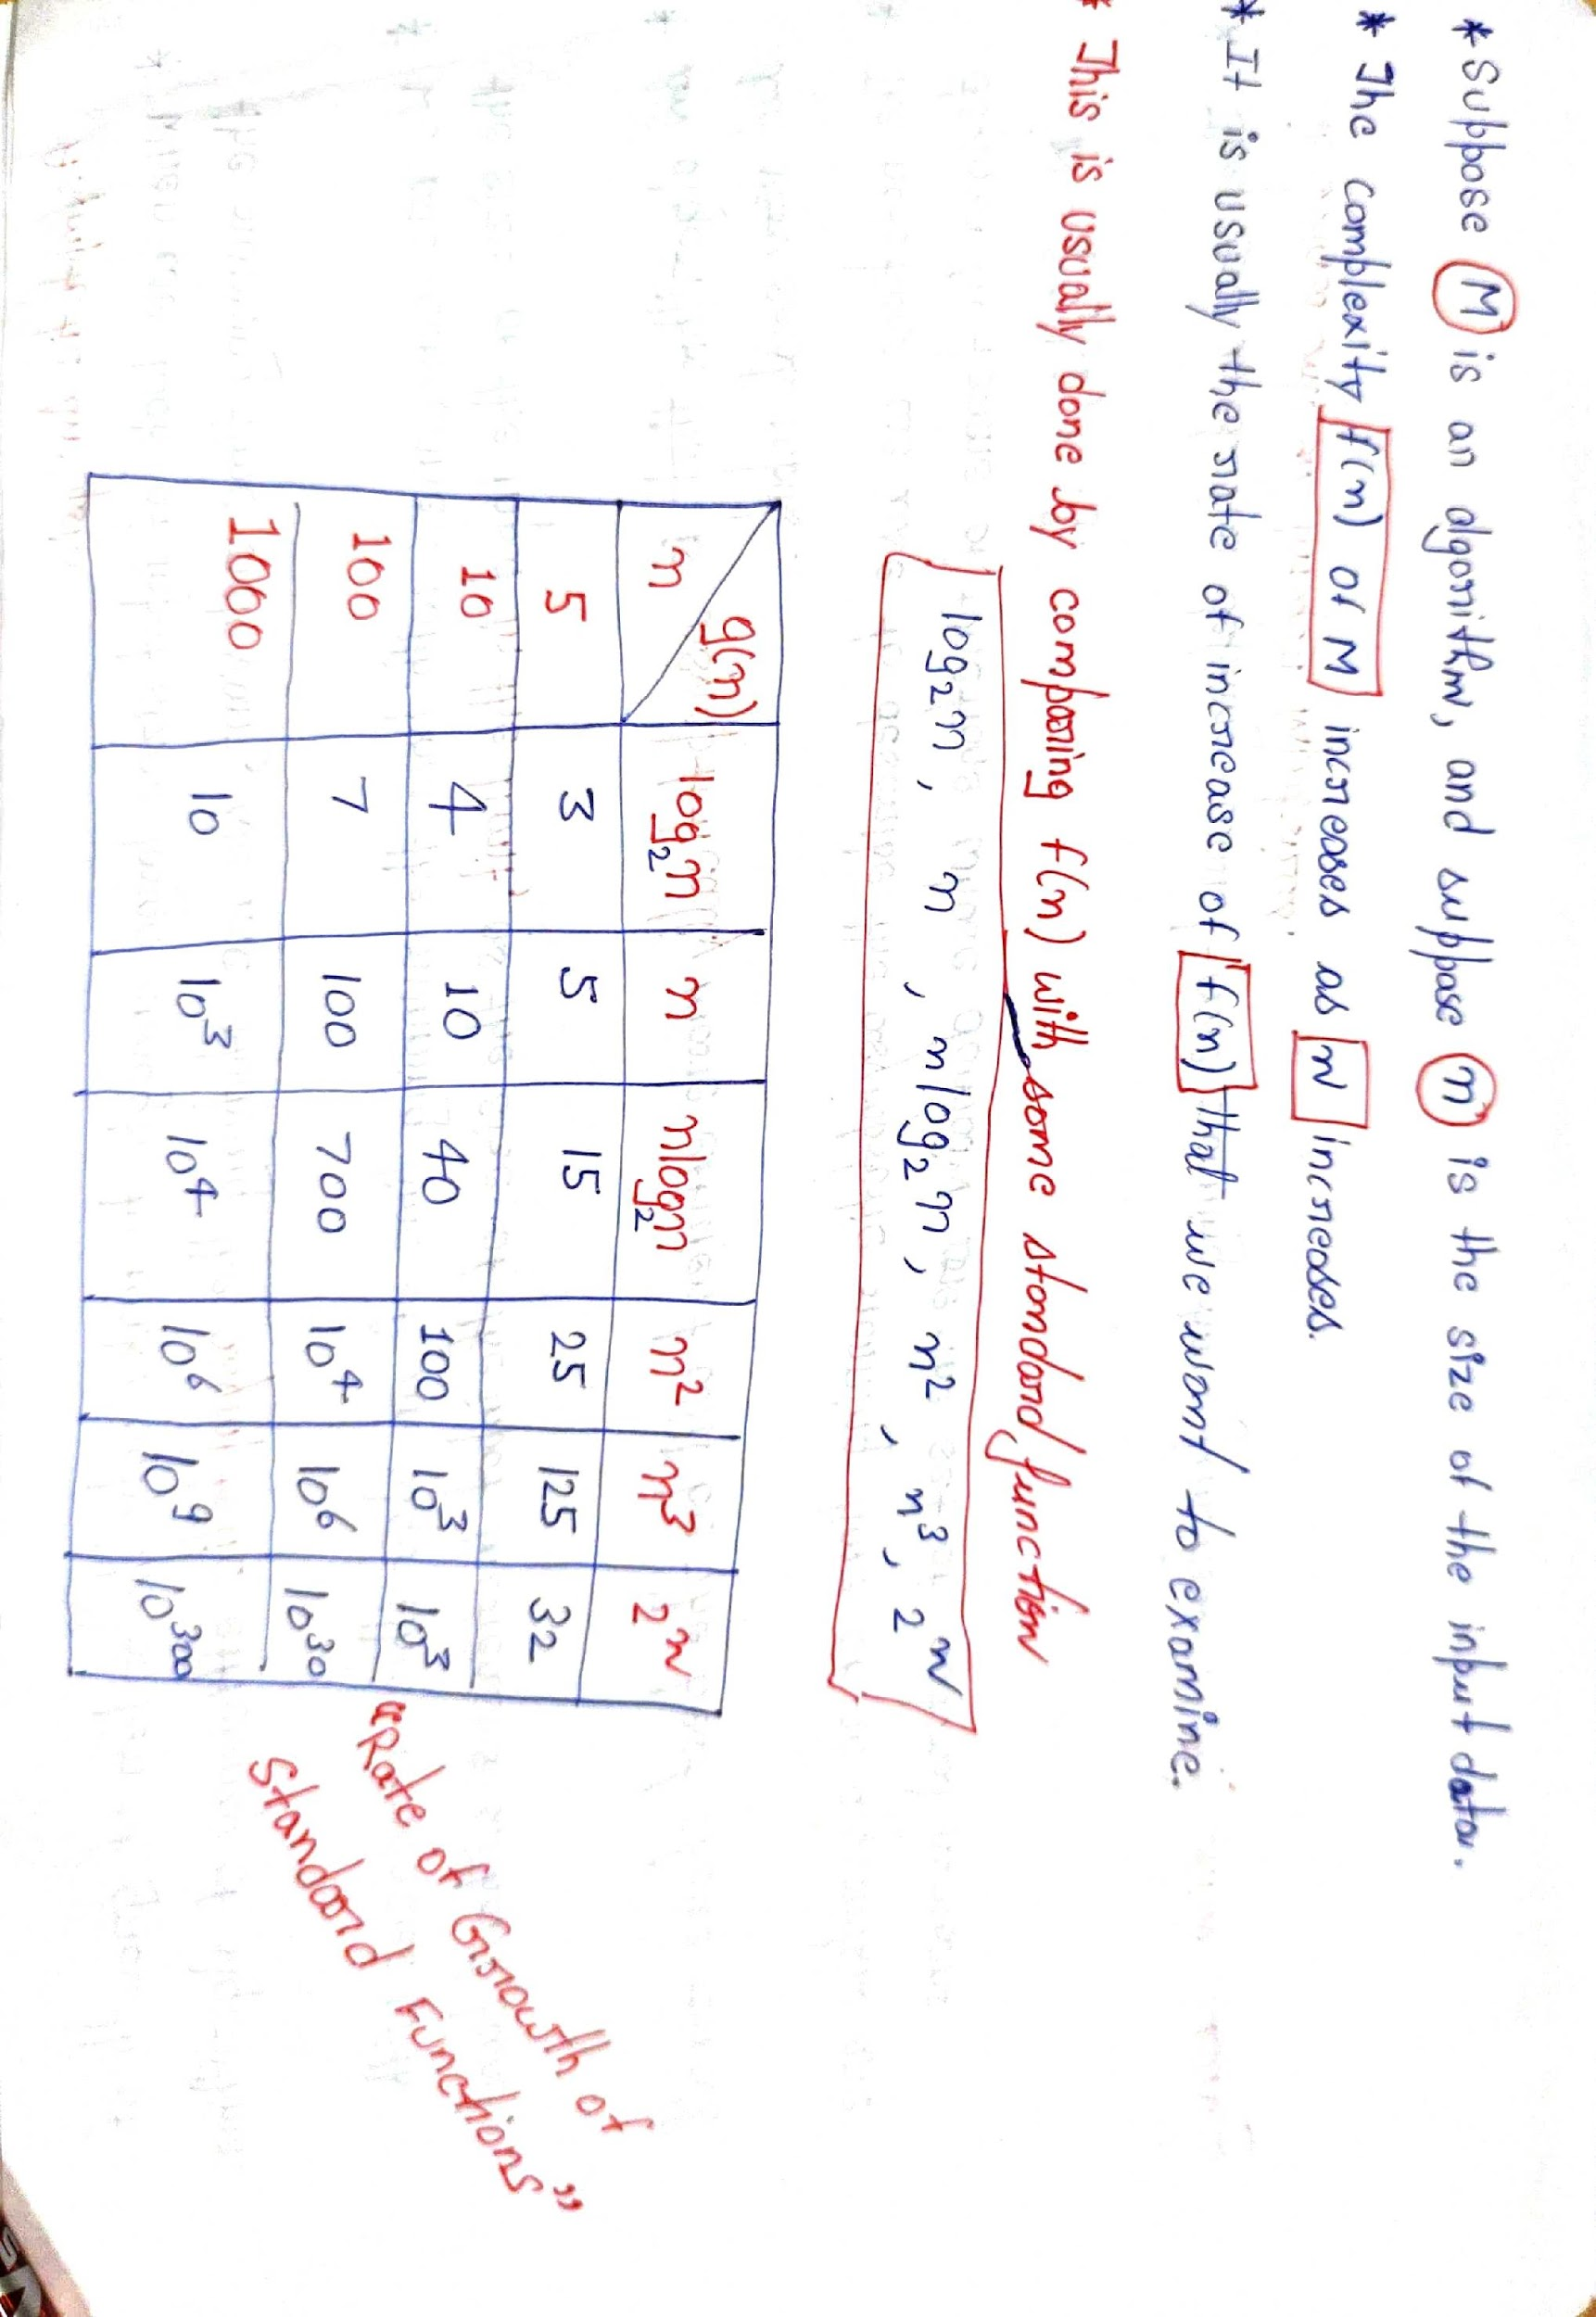 * Suppose M is an algorithm, and suppose n is the size of the input data.
* The complexity f(n) of M increases as n increases.
* It is usually the rate of increase of f(n) that we want to examine.
* This is usually done by comparing f(n) with some standard function
log₂n, n, nlog₂n, n², n³, 2ⁿ
n g(n) log₂n n nlog₂n n² n³ 2ⁿ
5 3 5 15 25 125 32
10 4 10 40 100 10³ 10³
100 7 100 700 10⁴ 10⁶ 10³⁰
1000 10 10³ 10⁴ 10⁶ 10⁹ 10³⁰⁰
"Rate of Growth of
Standard Functions"